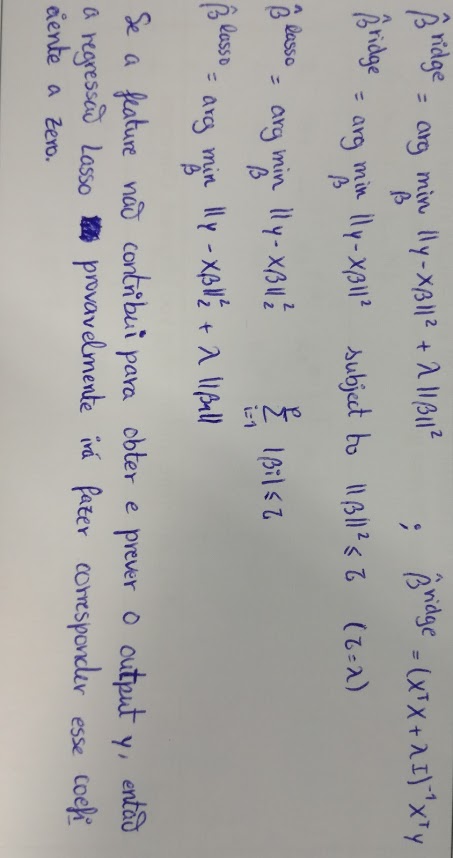 β̂ ridge = arg min β ||y - Xβ||² + λ ||β||² ; β̂ ridge = (XᵀX + λI)⁻¹ Xᵀy
β̂ ridge = arg min β ||y - Xβ||² subject to ||β||² ≤ τ (τ=λ)
β̂ lasso = arg min β ||y - Xβ||₂² Σ i=1 p |βi| ≤ τ
β̂ lasso = arg min β ||y - Xβ||₂² + λ ||β₁||
Se a feature não contribui para obter e prever o output y, então
a regressão Lasso provavelmente irá fazer corresponder esse coefi
ciente a zero.